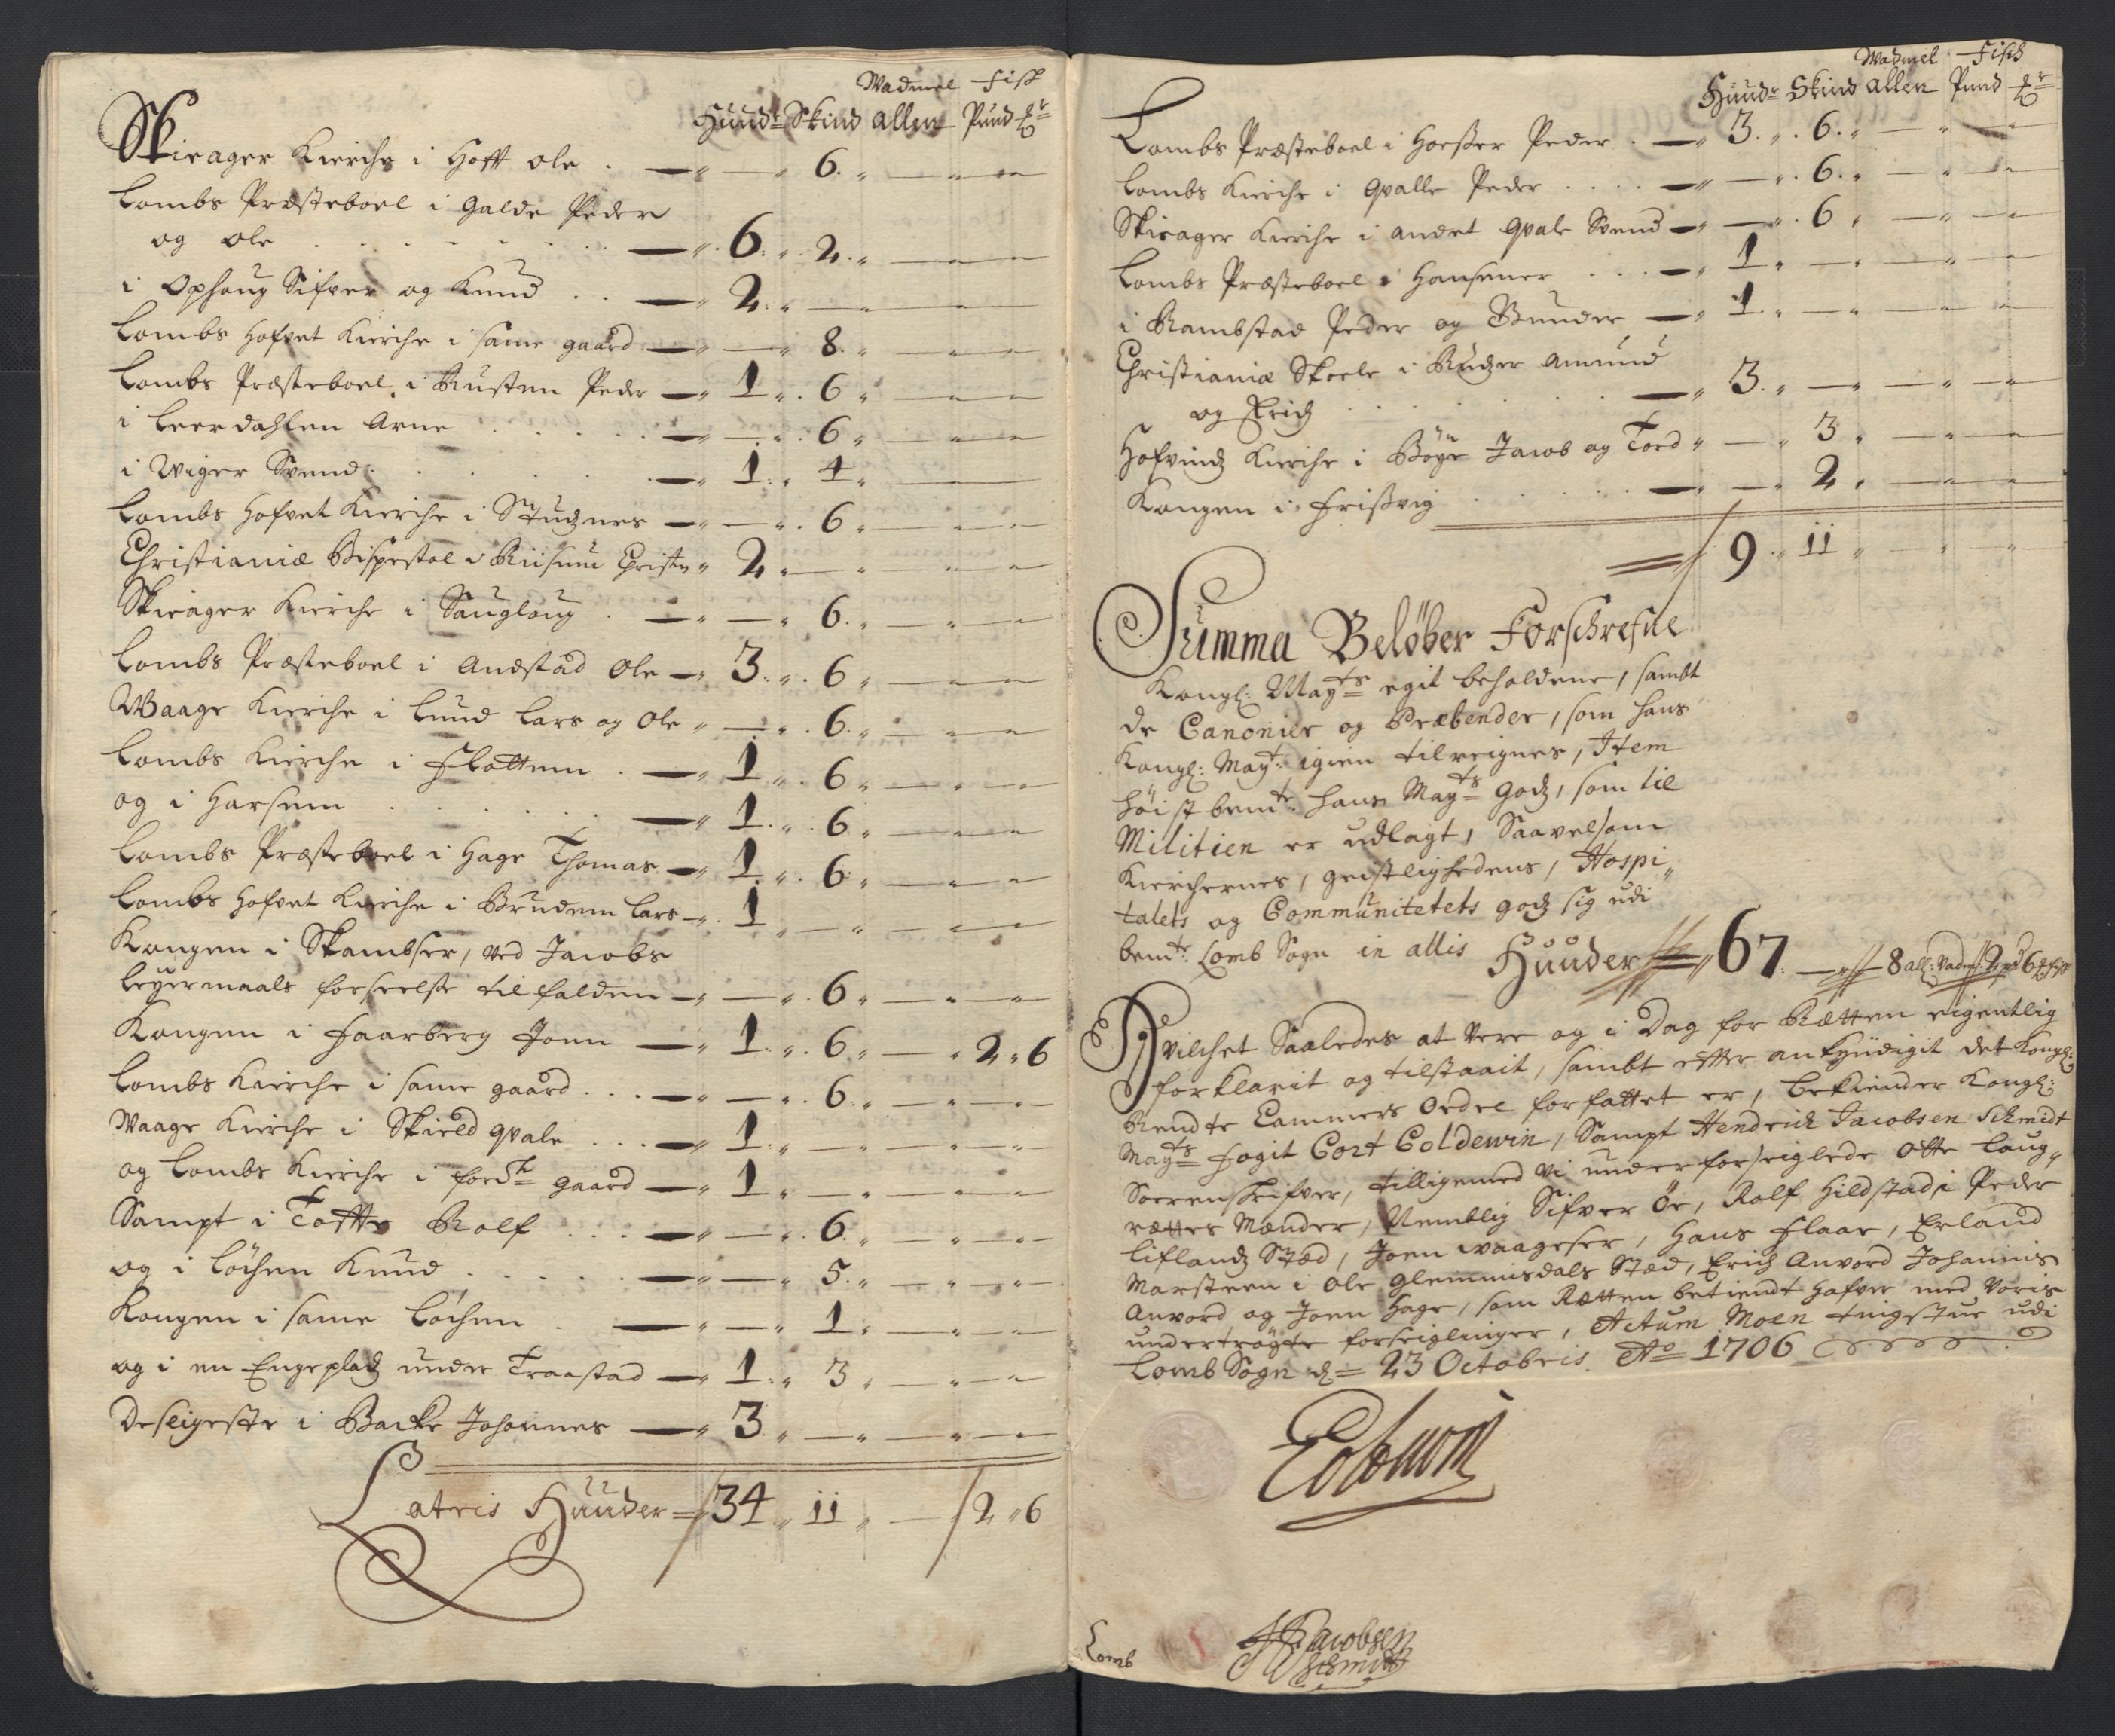 Wadmel Fisk
Huud Skind allen Pund
Skieager Kierche i Hoff Ole . — 6.
Lombs Præsteboel i Galde Peder
og Ole — 6. 2.
i Ophoug Sifver og Knud — 2.
Lombs Hofvet Kierche i same gaard — 8.
Lombs Præsteboel i Rusten Peder — 1 . 6
i Leerdahlen Arne — 6
i Wiger Svend — 1 . 4
Lombs Hofvet Kierche i Studznes — 6
Christianiæ Bispestol i Riisum Christen 2.
Skieager Kierche i Sougloug — 6.
Lombs Præsteboel i Andstad Ole — 3 . 6
Waage Kierche i Lund Lars og Ole — 6.
Lombs Kierche i Flottem — 1 . 6
og i Harsem — 1 . 6
Lombs Præsteboel i Hage Thomas — 1 . 6
Lombs Hofvet Kierche i Brudem Lars — 1
Kongen i Skambser, ved Jacobs
Leyermaals forseelse tilfalden — 6
Kongen i Faarberg Joen — 1 . 6 — 2 6
Lombs Kierche i same gaard . . . — 6.
Waage Kierche i Skield qvale . . . — 1
og Lombs Kierche i forde gaard — 1
Sampt i Toffte Rolf . . . — 6.
og i Löchen Knud — 5.
Kongen i same Löchen — 1
og i en Engepladz under Traastad — 1 . 3
Desligeste i Backe Johannes — 3
Latris Huuder 34 . 11 — 2 6
Wadmel Fisk
Huud Skind allen Pund
Lombs Præsteboel i Horsser Peder . — 3 . 6
Lombs Kierche i Qvalle Peder . . . . — 6.
Skieager Kierche i andet Qvale Svend — 6
Lombs Præsteboel i Hansener . . . — 1
i Rambstad Peder og Gunder — 1
Christianiæ Skoele i Rudzer Amund
og Erich — 3.
Hofvindz Kierche i Böye Jacob og Tord — 3
Kongen i Frisvig — 2
9 . 11
Summa Beløber Forschrefne
Kongl: Mayts egit beholdene, sambt
de Canonier og Præbender, som hans
Kongl: Mayt: igien tilreignes, Item
höist bemte hans Mayts godz, som til
Militien er udlagt, Saavelsom
Kierchernes, geistlighedens, Hospi„
talets og Communitetets godz sig udi
bemte: Lomb Sogn in allis Huuder 67. — 8 all: Vadm: 2 pd 6
Hvilchet Saaledes at Vere og i Dag for Rætten eigentlig
forklarit og tilstaait, sambt effter ankyndigit det Kongl:
Rendte Cammers Ordre forfattet er, bekiender Kongl:
Mayts Fogit Cort Coldewin, Sampt Hendrich Jacobsen Schmidt
Sorenskrifver, tilligemed vi underforseiglede Otte Laug„
rættes Mænder, Nemblig Sifver Öe, Rolf Hildstad i Peder
Liflandz Stæd, Joen Waageser, Hans Flaae, Erland
Marsteen i Ole Glemmisdals Stæd, Erich Anvord Johannis
Anvord og Joen Hage, som Rætten betient hafver med Voris
undertrögte forseiglinger, Actum Moen tingstue udi
Lomb Sogn d 23 Octobris Ao 1706
Coldewin
Lomb
H Jacobsen
Schmidt